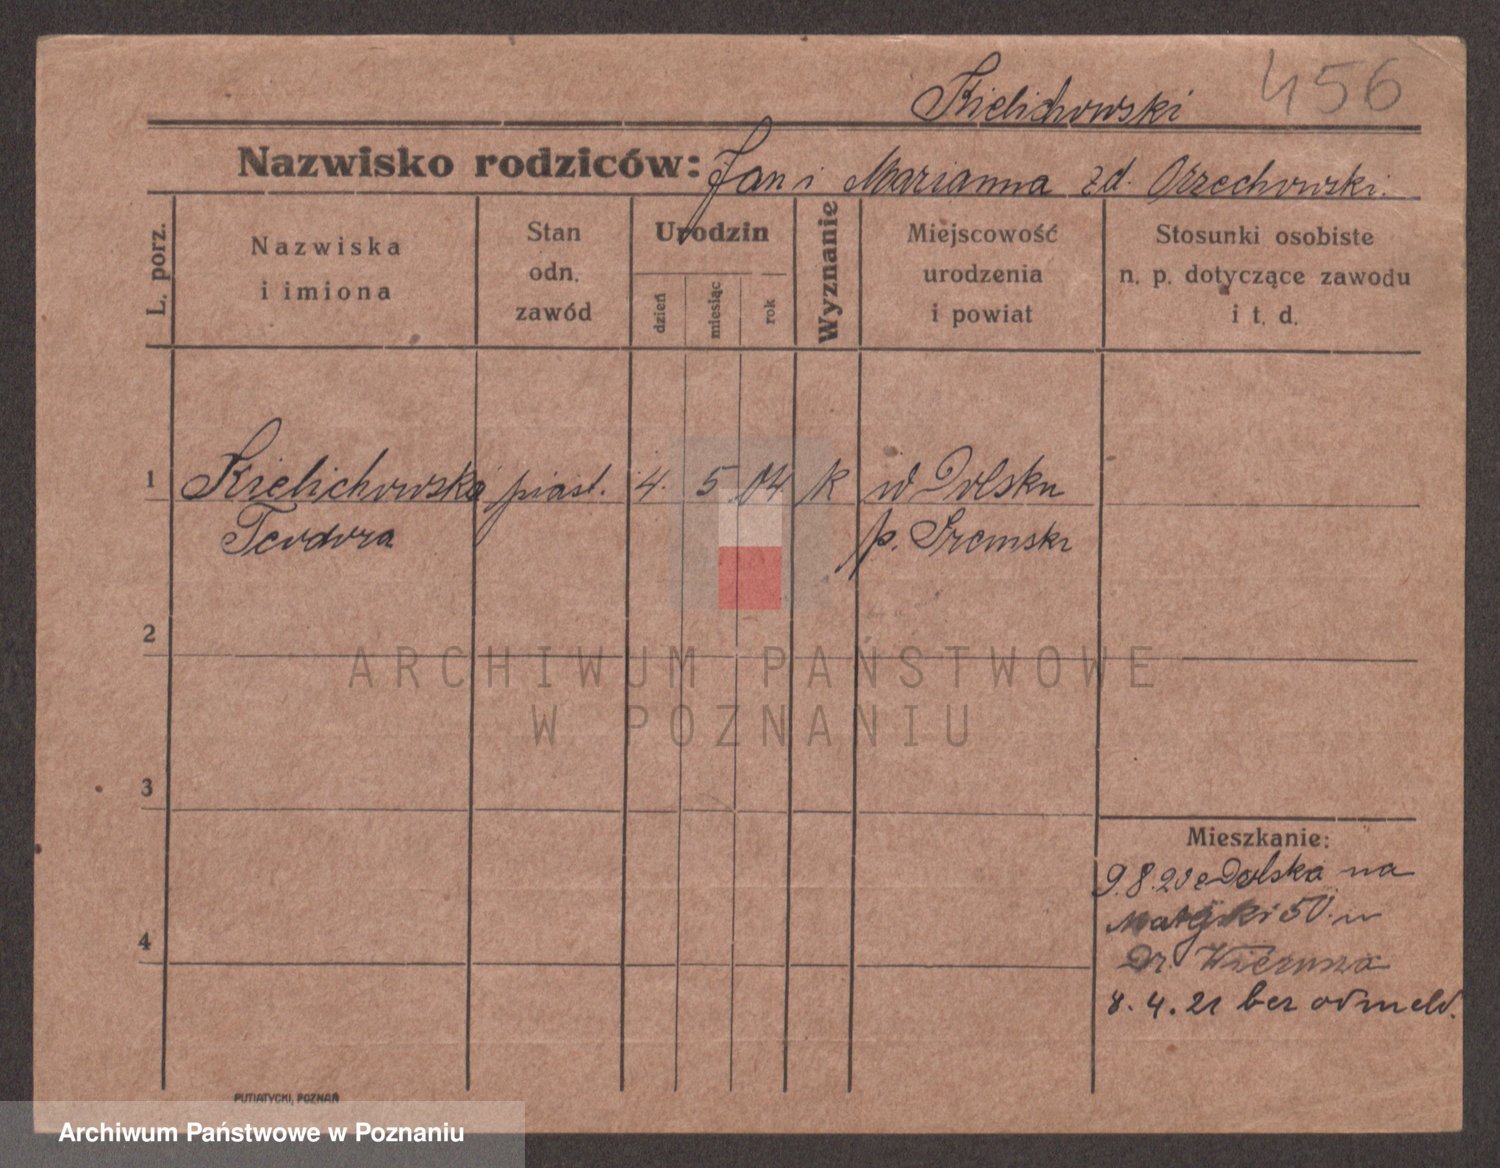 456
Kielichowski
Nazwisko rodziców: Jan i Marianna zd. Orzechowski.
L. porz.
Nazwiska
i imiona
Stan
odn.
zawód
Urodzin
dzień
miesiąc
rok
Wyznanie
Miejscowość
urodzenia
i powiat
Stosunki osobiste
n. p. dotyczące zawodu
i t. d.
1 Kielichowska piast. 4. 5 04 K w Dolsku
Teodora p. Śremski
2
3
4
Mieszkanie:
9.8.20 z Dolska na
Matejki 50. u
Dr. Wierusza
8.4.21 bez odmeld.
PUTIATYCKI, POZNAŃ
ARCHIWUM PAŃSTWOWE
W POZNANIU
Archiwum Państwowe w Poznaniu